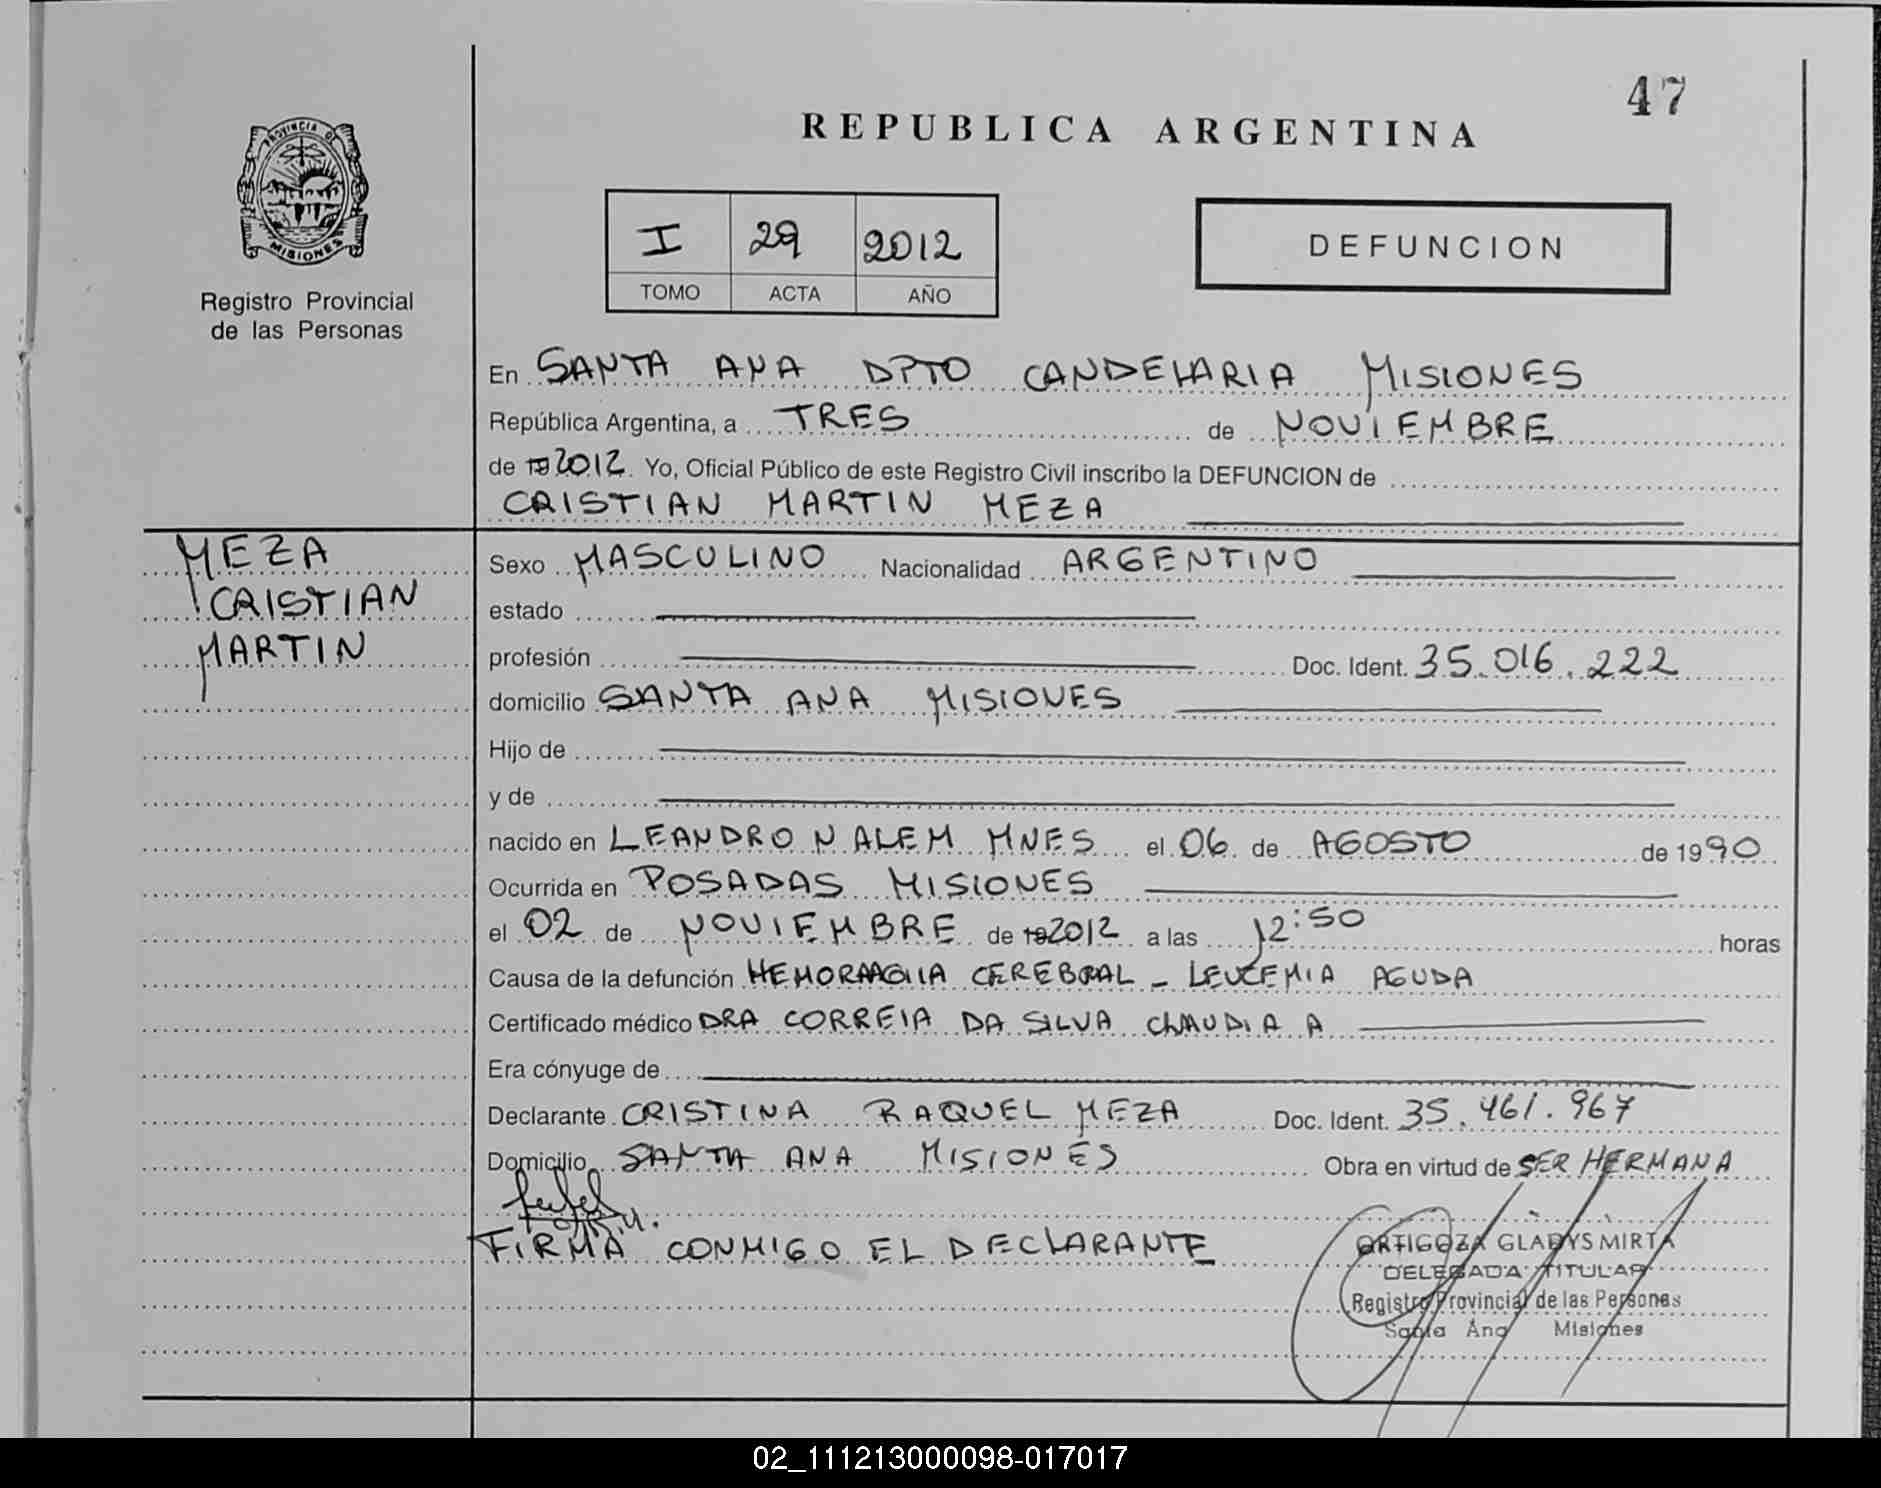 47
REPUBLICA ARGENTINA
PROVINCIA DE
MISIONES
Registro Provincial
de las Personas
I 29 2012
TOMO ACTA AÑO
DEFUNCION
En SANTA ANA DPTO CANDELARIA MISIONES
República Argentina, a TRES de NOVIEMBRE
de 19 2012. Yo, Oficial Público de este Registro Civil inscribo la DEFUNCION de
CRISTIAN MARTIN MEZA
MEZA
CRISTIAN
MARTIN
Sexo MASCULINO Nacionalidad ARGENTINO
estado
profesión Doc. Ident. 35.016.222
domicilio SANTA ANA MISIONES
Hijo de
y de
nacido en LEANDRO N ALEM MNES el 06 de AGOSTO de 1990
Ocurrida en POSADAS MISIONES
el 02 de NOVIEMBRE de 19 2012 a las 12:50 horas
Causa de la defunción HEMORRAGIA CEREBRAL - LEUCEMIA AGUDA
Certificado médico DRA CORREIA DA SILVA CLAUDIA A
Era cónyuge de
Declarante CRISTINA RAQUEL MEZA Doc. Ident. 35.461.967
Domicilio SANTA ANA MISIONES Obra en virtud de SER HERMANA
FIRMA CONMIGO EL DECLARANTE
ORTIGOZA GLADYS MIRTA
DELEGADA TITULAR
Registro Provincial de las Personas
Santa Ana Misiones
02_111213000098-017017